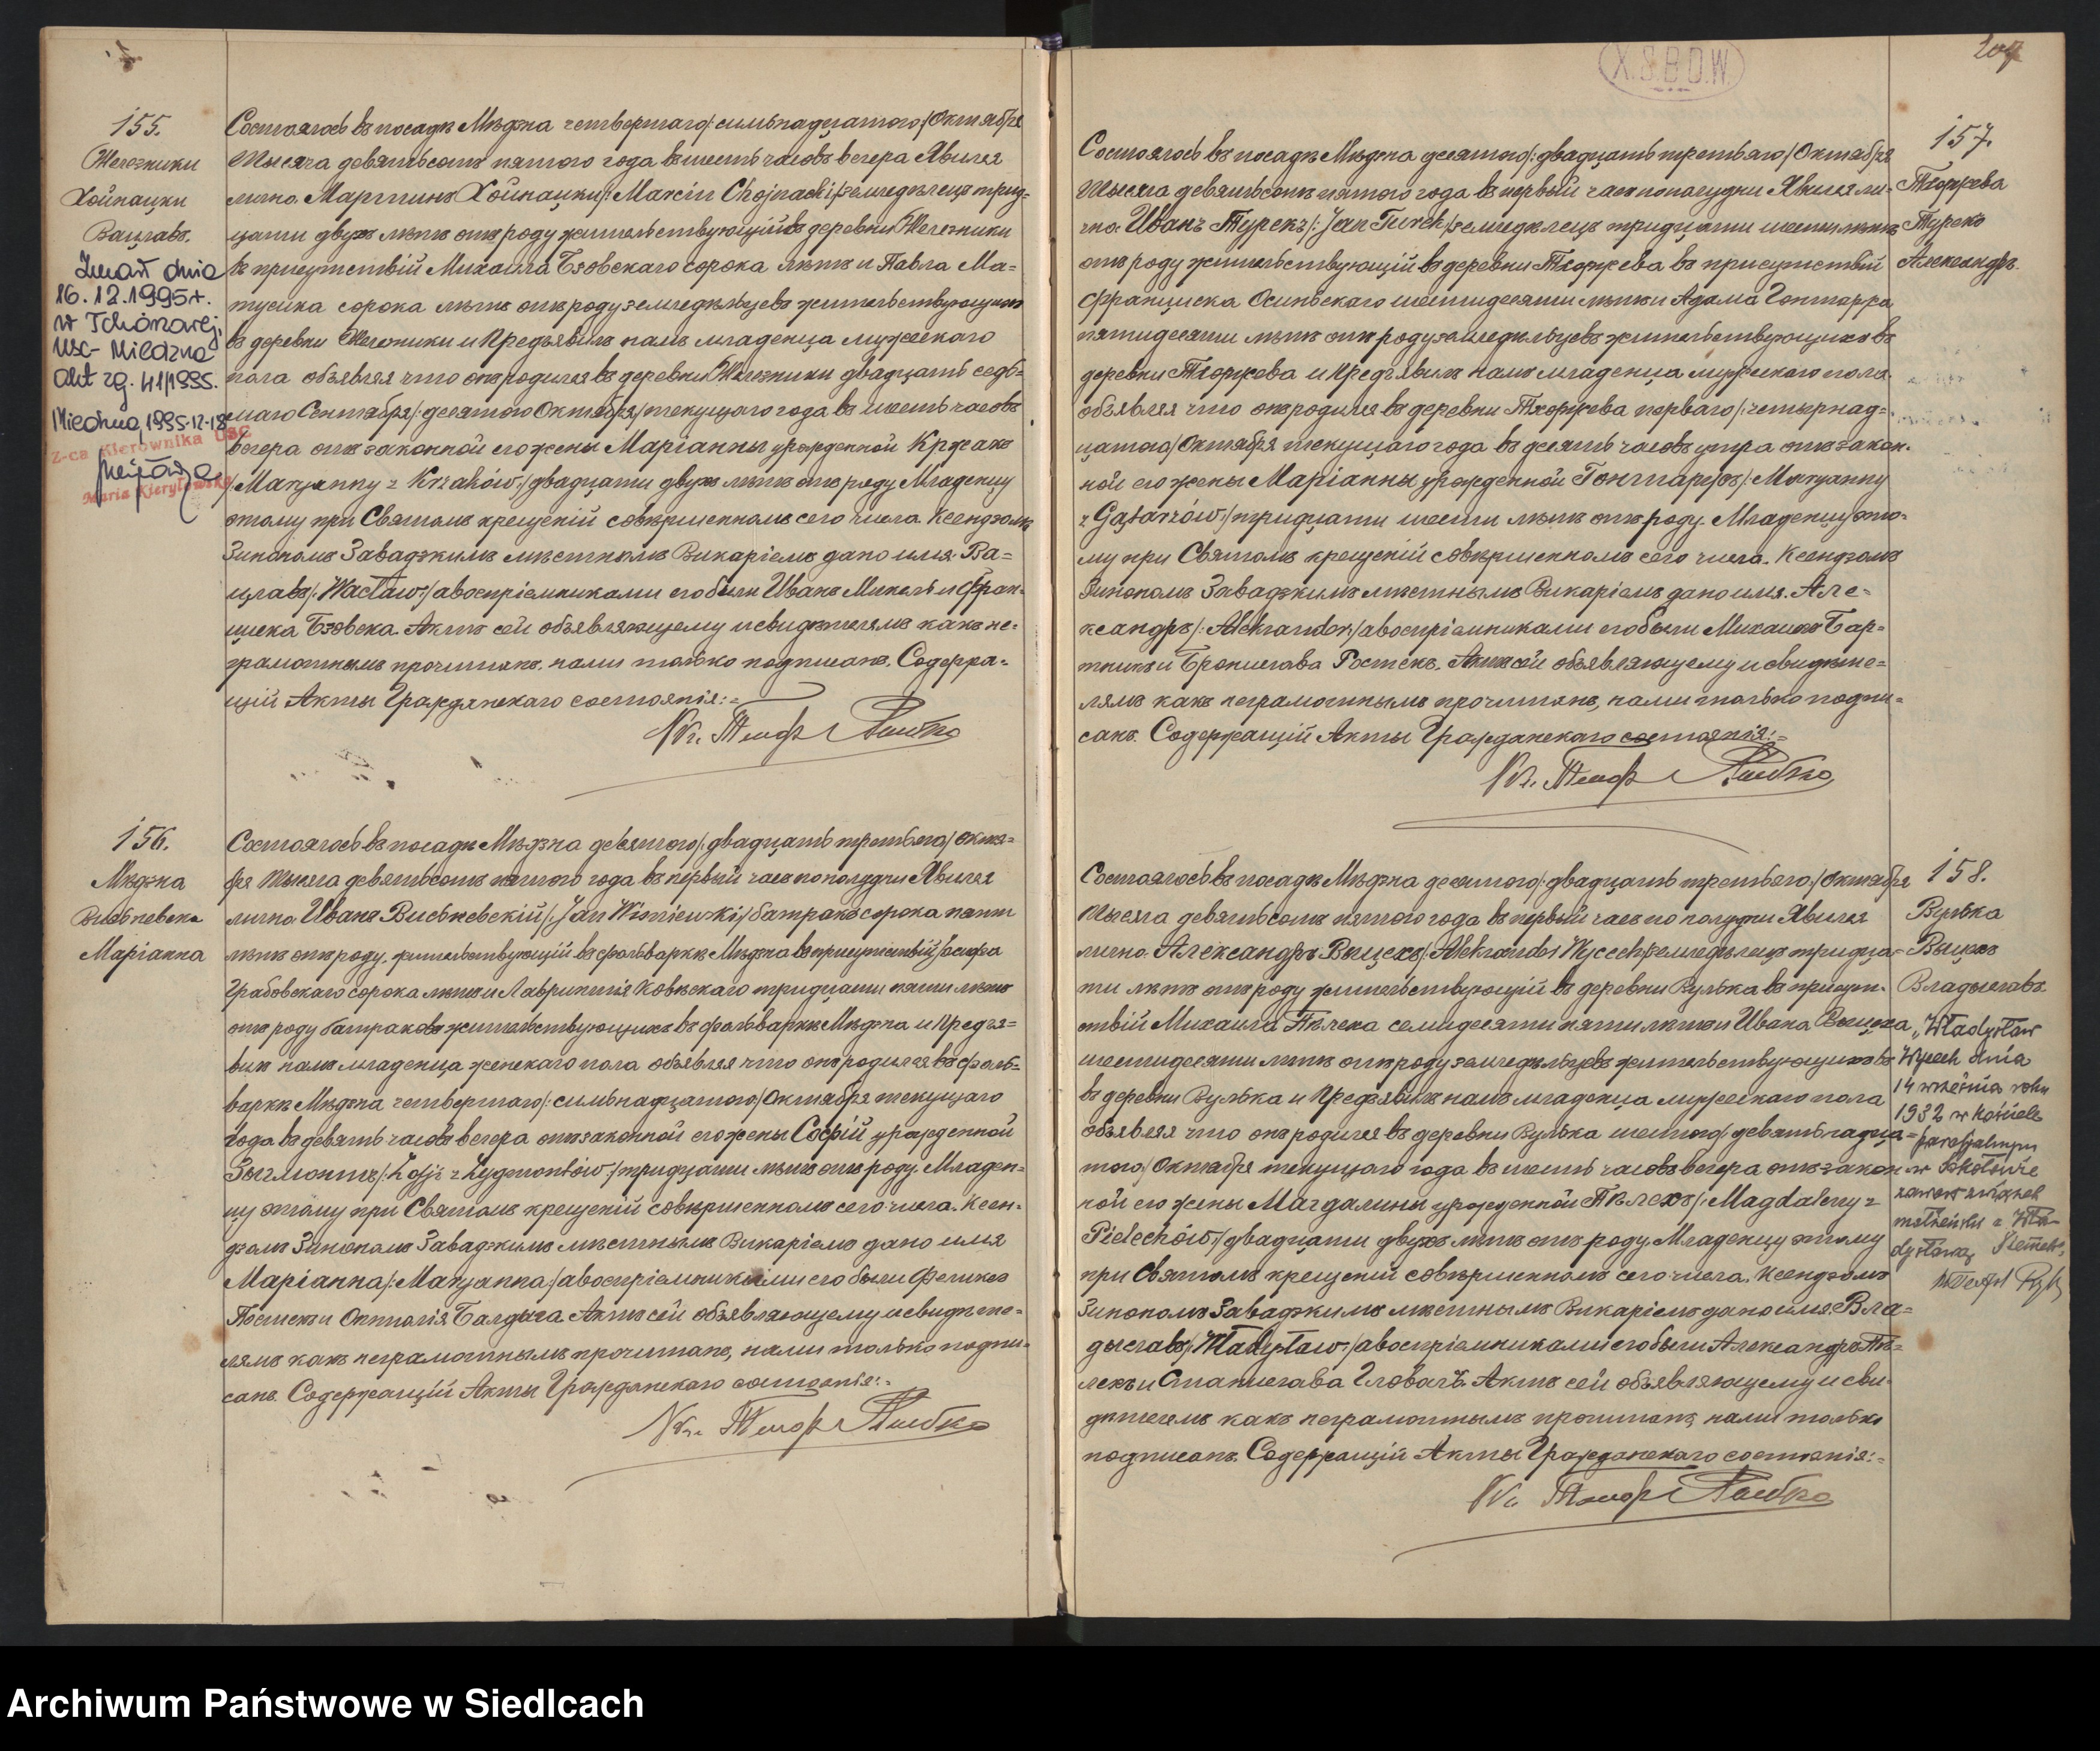 155.
Железники
Хойнацки
Вацлавъ.
Zmarł dnia
16.12.1995r.
w Tchórzowej,
USC - Miedzna
Akt zg. 41/1995.
Miedzna, 1995-12-18
Z-ca Kierownika USC
Maria Kieryłowska
Состоялось въ посадѣ Мѣдзна четвертаго /:семьнадцатого:/ Октября
Тысяча девятьсотъ пятого года въ шесть часовъ вечера Явился
лично Мартинъ Хойнацки /:Marcin Chojnacki:/ земледѣлецъ трид-
цати двухъ лѣтъ отъ роду жительствующій въ деревни Железники
въ присутствій Михаила Бзовскаго сорока лѣтъ и Павла Ма-
тусика сорока лѣтъ отъ роду земледѣльцевъ жительствующихъ
въ деревни Железники и Предъявилъ намъ младенца мужескаго
пола объявляя что онъ родился въ деревни Железники двадцать седь-
маго Сентября /:десятого Октября:/ текущаго года въ шесть часовъ
вечера отъ законной его жены Маріанны урожденной Кржакъ
/:Maryanny z Krzaków:/ двадцати двухъ лѣтъ отъ роду Младенцу
этому при Святомъ крещеній совершенномъ сего числа Ксендзомъ
Зинономъ Завадзкимъ мѣстнымъ Викаріемъ дано имя Ва-
цлавъ /:Wacław:/ а воспріемниками его были Иванъ Михель и Фран-
циска Бзовска. Актъ сей объявляющему и свидѣтелямъ какъ не-
грамотнымъ прочитанъ, нами только подписанъ. Содержа-
щій Акты Гражданскаго состоянія:=
156.
Мѣдзна
Висьневска
Маріанна
Состоялось въ посадѣ Мѣдзна десятого /:двадцать третьяго:/ Октя-
бря Тысяча девятьсотъ пятого года въ первый часъ по полудни Явился
лично Иванъ Висьневскій /:Jan Wisniewski:/ батракъ сорока пяти
лѣтъ отъ роду жительствующій въ фольваркѣ Мѣдзна въ присутствій Іосифа
Грабовскаго сорока лѣтъ и Лаврентія Ковескаго тридцати пяти лѣтъ
отъ роду батраковъ жительствующихъ въ фольваркѣ Мѣдзна и Предъя-
вилъ намъ младенца женскаго пола объявляя что онъ родился въ фоль-
варкѣ Мѣдзна четвертаго /:семьнадцатого:/ Октября текущаго
года въ девять часовъ вечера отъ законной его жены Софій урожденной
Зыгмонтъ /:Zofji z Zygmontów:/ тридцати лѣтъ отъ роду. Младен-
цу этому при Святомъ крещеній совершенномъ сего числа. Ксен-
дзомъ Зинономъ Завадзкимъ мѣстнымъ Викаріемъ дано имя
Маріанна /:Maryanna:/ а воспріемниками его были Феликсъ
и Антонія Балдыга Актъ сей объявляющему и свидѣте-
лямъ какъ неграмотнымъ прочитанъ, нами только подпи-
санъ. Содержащій Акты Гражданскаго состоянія:=
X.S.B.D.W.
207
157.
Тхоржева
Турекъ
Александръ.
Состоялось въ посадѣ Мѣдзна десятого /:двадцать третьяго:/ Октября
Тысяча девятьсотъ пятого года въ первый часъ по полудни Явился ли-
чно Иванъ Турекъ /:Jan Turek:/ земледѣлецъ тридцати шести лѣтъ
отъ роду жительствующій въ деревни Тхоржева въ присутствій
Франциска Осиньскаго шестидесяти лѣтъ и Адама Гонтаржа
пятидесяти лѣтъ отъ роду земледѣльцевъ жительствующихъ въ
деревни Тхоржева и Предъявилъ намъ младенца мужескаго пола
объявляя что онъ родился въ деревни Тхоржева перваго /:четырнад-
цатого:/ Октября текущаго года въ десять часовъ утра отъ закон-
ной его жены Маріанны урожденной
тридцати шести лѣтъ отъ роду. Младенцу это-
му при Святомъ крещеній совершенномъ сего числа. Ксендзомъ
Зинономъ Завадзкимъ мѣстнымъ Викаріемъ дано имя. Але-
ксандръ /:Aleksander:/ а воспріемниками его были Михаилъ Бар-
тникъ и Бронислава Ростекъ. Актъ сей объявляющему и свидѣте-
лямъ какъ неграмотнымъ прочитанъ, нами только подпи-
санъ. Содержащій Акты Гражданскаго состоянія:=
158.
Вулька
Выцехъ
Владыславъ.
„Władysław
Wycech dnia
14 września roku
1932 w kościele
parafjalnym
w Sokołowie
zawarł związek
małżeński z Wła-
dysławą
Состоялось въ посадѣ Мѣдзна десятого /:двадцать третьяго:/ Октября
Тысяча девятьсотъ пятого года въ первый часъ по полудни Явился
лично Александръ Выцехъ /:Aleksander Wycech:/ земледѣлецъ тридца-
ти лѣтъ отъ роду жительствующій въ деревни Вулька въ присут-
ствій Михаила Пѣлеха семидесяти пяти лѣтъ и Ивана Выцеха
шестидесяти лѣтъ отъ роду земледѣльцевъ жительствующихъ въ
въ деревни Вулька и Предъявилъ намъ младенца мужескаго пола
объявляя что онъ родился въ деревни Вулька шестого /:девятьнадца-
того:/ Октября текущаго года въ шесть часовъ вечера отъ закон-
ной его жены Магдалины урожденной Пѣлехъ /:Magdaleny z
Pielechów:/ двадцати двухъ лѣтъ отъ роду. Младенцу этому
при Святомъ крещеній совершенномъ сего числа. Ксендзомъ
Зинономъ Завадзкимъ мѣстнымъ Викаріемъ дано имя. Вла-
дыславъ /:Władysław:/ а воспріемниками его были Александръ Пѣ-
лехъ и Станислава Гловачъ. Актъ сей объявляющему и сви-
дѣтелямъ какъ неграмотнымъ прочитанъ, нами только
подписанъ. Содержащій Акты Гражданскаго состоянія:=
Archiwum Państwowe w Siedlcach